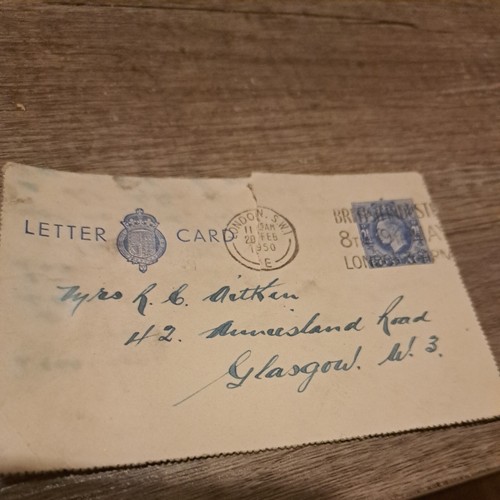 LETTER CARD
LONDON. S.W.1
11 AM
20 FEB
1950
E
8TH
LONDON
Mrs R. C. Aitken
42. Anniesland Road
Glasgow. W. 3.